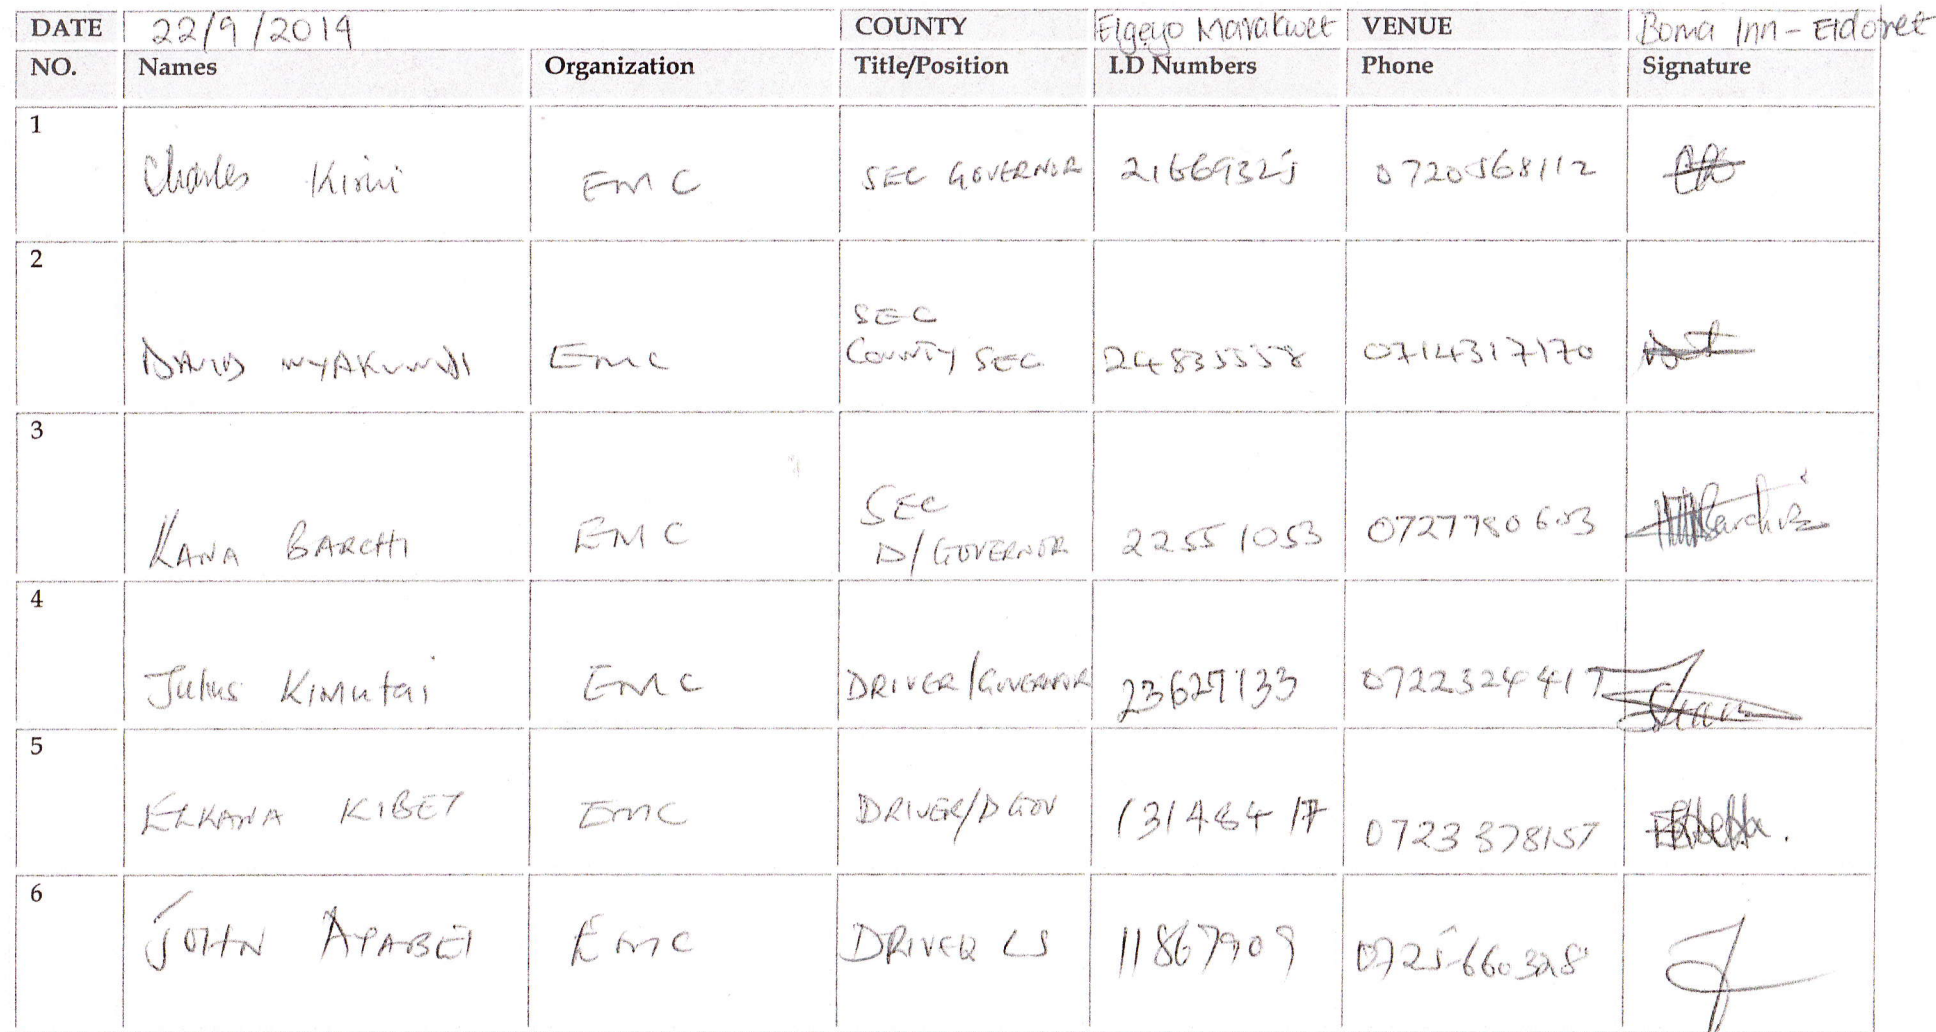 DATE 22/9/2014 COUNTY Elgeyo Marakwet VENUE Boma Inn - Eldoret
NO. Names Organization Title/Position I.D Numbers Phone Signature
1 Charles Kirui EMC SEC GOVERNOR 21669325 0720568112
2 DAVID NYAKUNDI EMC SEC COUNTY SEC 24835558 0714317170
3 KANA BARCHI EMC SEC D/GOVERNOR 22551053 0727780603
4 Julius Kimutai EMC DRIVER/GOVERNOR 23627133 0722324417
5 ELKANA KIBET EMC DRIVER/D GOV 13148417 0723378157
6 JOHN AYABEI EMC DRIVER CS 11867909 0725660328